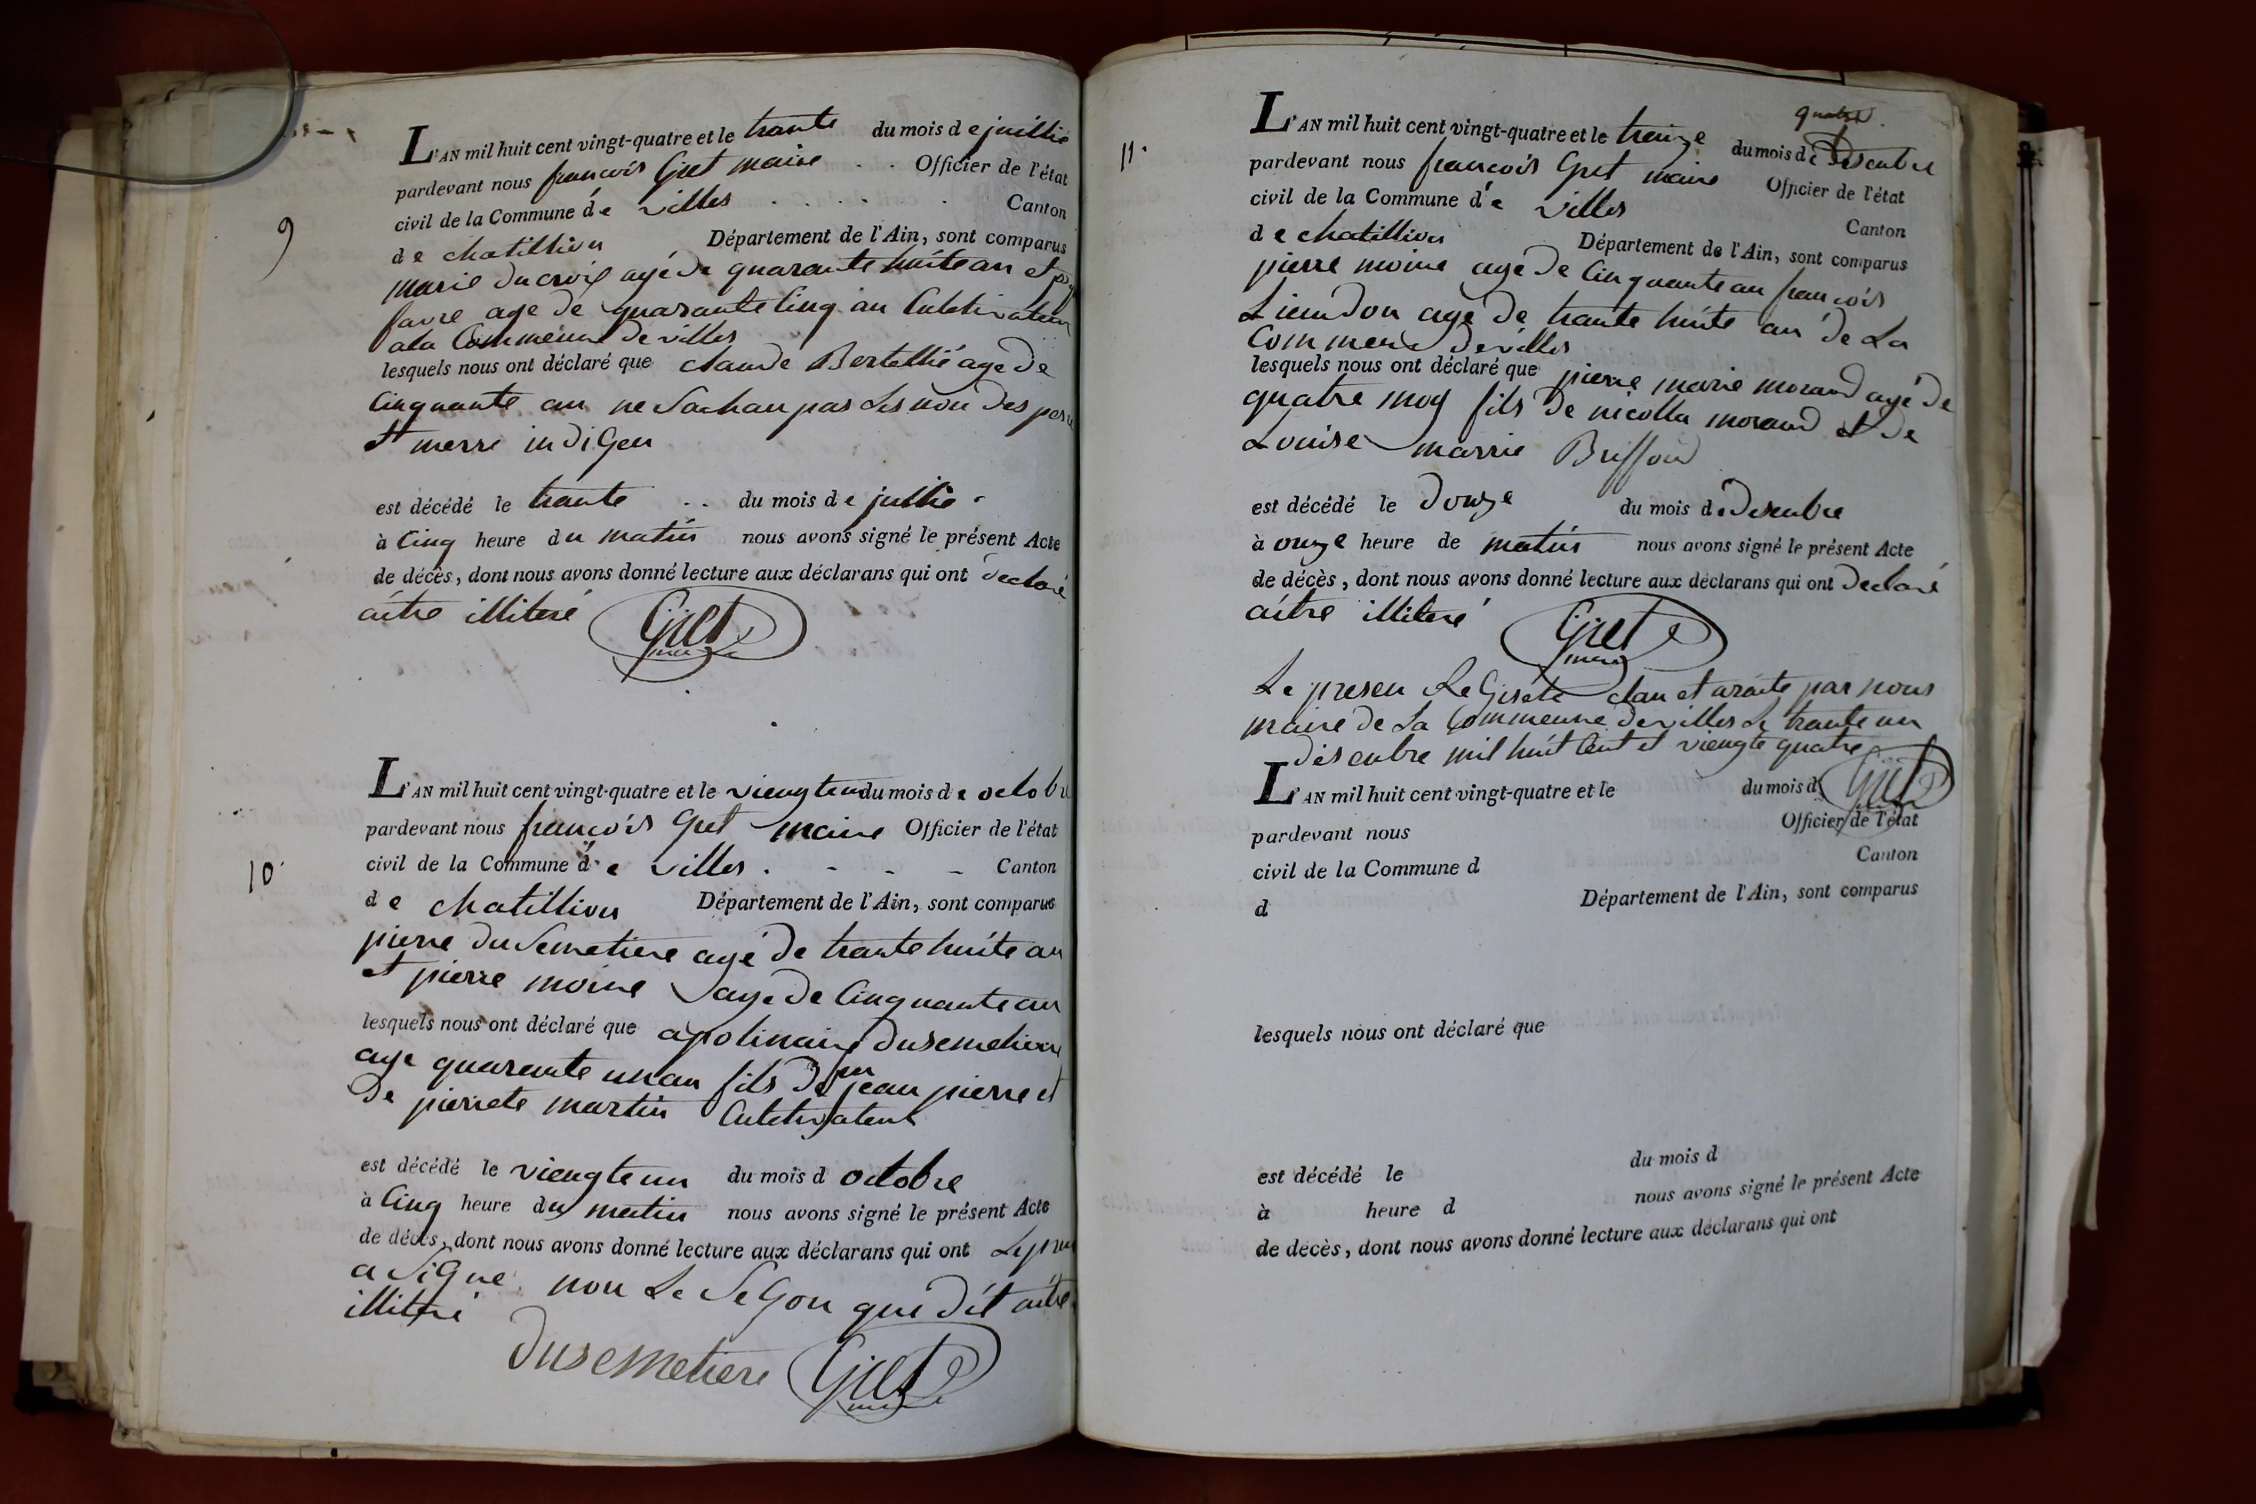 9
L'AN mil huit cent vingt-quatre et le trante du mois de juillié
pardevant nous francois Gret maire Officier de l'état
civil de la Commune de villes Canton
de chatillion Département de l'Ain, sont comparus
marie ducroix agé de quarante huite an et
favre age de quarante Cinq an Cultivateur
a la Commeune de villes
lesquels nous ont déclaré que claude Bertellié age de
Cinquante an ne Sachan pas Les non des pere
et merre indiGen
est décédé le trante du mois de juillié
à Cinq heure du matin nous avons signé le présent Acte
de décès, dont nous avons donné lecture aux déclarans qui ont declaré
aitre illiteré Gret maire
10
L'AN mil huit cent vingt-quatre et le viengteun du mois de octobre
pardevant nous francois Gret maire Officier de l'état
civil de la Commune de villes Canton
de chatillion Département de l'Ain, sont comparus
pierre duSemetiere agé de trante huite an
et pierre moine age de Cinquante an
lesquels nous ont déclaré que apolinaire dusemetiere
age quarante un an fils de feu jean pierre et
De pierrete martin Cultivateur
est décédé le viengteun du mois d octobre
à Cinq heure du matin nous avons signé le présent Acte
de décès, dont nous avons donné lecture aux déclarans qui ont Le
a Signe non Le SeGon qui dit aitre
illiteré
dusemetiere Gret
11
quatre
L'AN mil huit cent vingt-quatre et le treize du mois de Desenbre
pardevant nous francois Gret maire Officier de l'état
civil de la Commune de villes Canton
de chatillion Département de l'Ain, sont comparus
pierre moine age De Cinquante an francois
Lieudon age de trante huite an de La
Commeune de villes
lesquels nous ont déclaré que pierre marie morand agé de
quatre moy fils De nicolla morand et De
Louise marrie Buffoud
est décédé le Douze du mois de Desenbre
à onze heure de matin nous avons signé le présent Acte
de décès, dont nous avons donné lecture aux déclarans qui ont Declaré
aitre illiteré Gret maire
Le presen ReGistre clau et araité par nous
maire de La Commeunne de villes Le trante un
desenbre mil huit Cent et viengte quatre Gret
L'AN mil huit cent vingt-quatre et le du mois d
pardevant nous Officier de l'état
civil de la Commune d Canton
d Département de l'Ain, sont comparus
lesquels nous ont déclaré que
est décédé le du mois d
à heure d nous avons signé le présent Acte
de décès, dont nous avons donné lecture aux déclarans qui ont